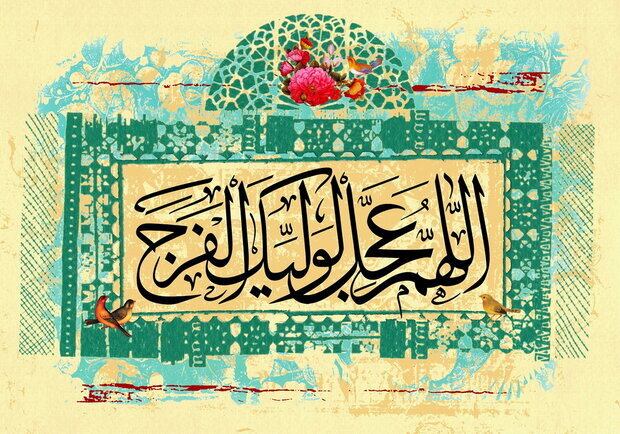 اللّهُمَّ عَجِّل لِوَلیِّکَ الفَرَج